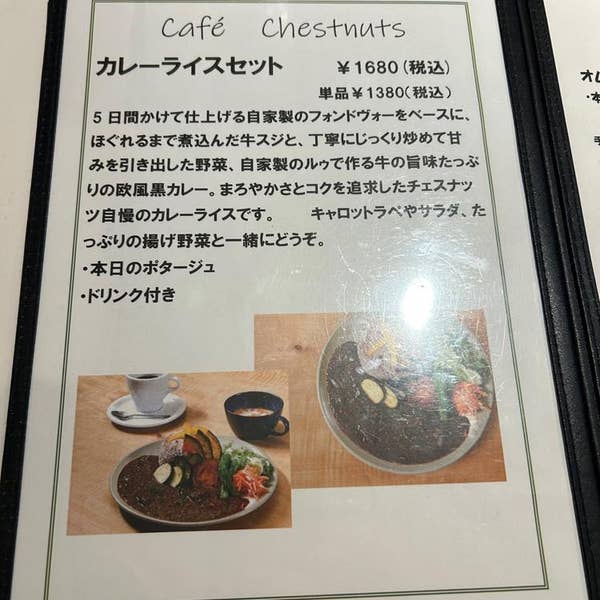 Café Chestnuts
カレーライスセット ￥1680(税込)
単品￥1380(税込)
5日間かけて仕上げる自家製のフォンドヴォーをベースに、
ほぐれるまで煮込んだ牛スジと、丁寧にじっくり炒めて甘
みを引き出した野菜、自家製のルゥで作る牛の旨味たっぷ
りの欧風黒カレー。まろやかさとコクを追求したチェスナッ
ツ自慢のカレーライスです。 キャロットラペやサラダ、た
っぷりの揚げ野菜と一緒にどうぞ。
・本日のポタージュ
・ドリンク付き